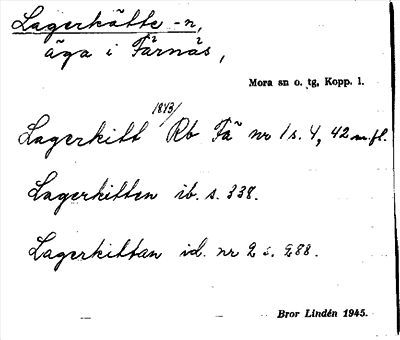 Lagerkätte -n,
äga i Färnäs,
Mora sn o. tg, Kopp. l.
1843/
Lagerkitt Rb Fä nr 1 s. 4, 42 m.fl.
Lagerkitten ib. s. 338.
Lagerkittan id. nr 2 s. 288.
Bror Lindén 1945.